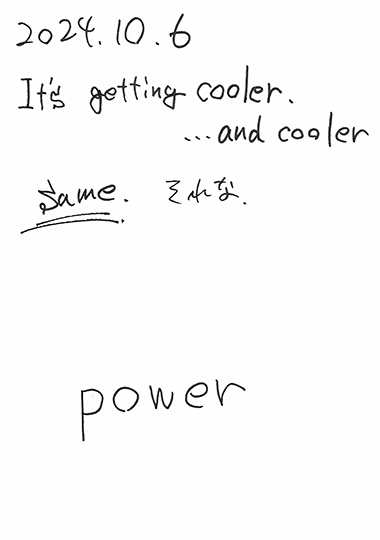 2024.10.6
It's getting cooler.
...and cooler
Same. それな.
power